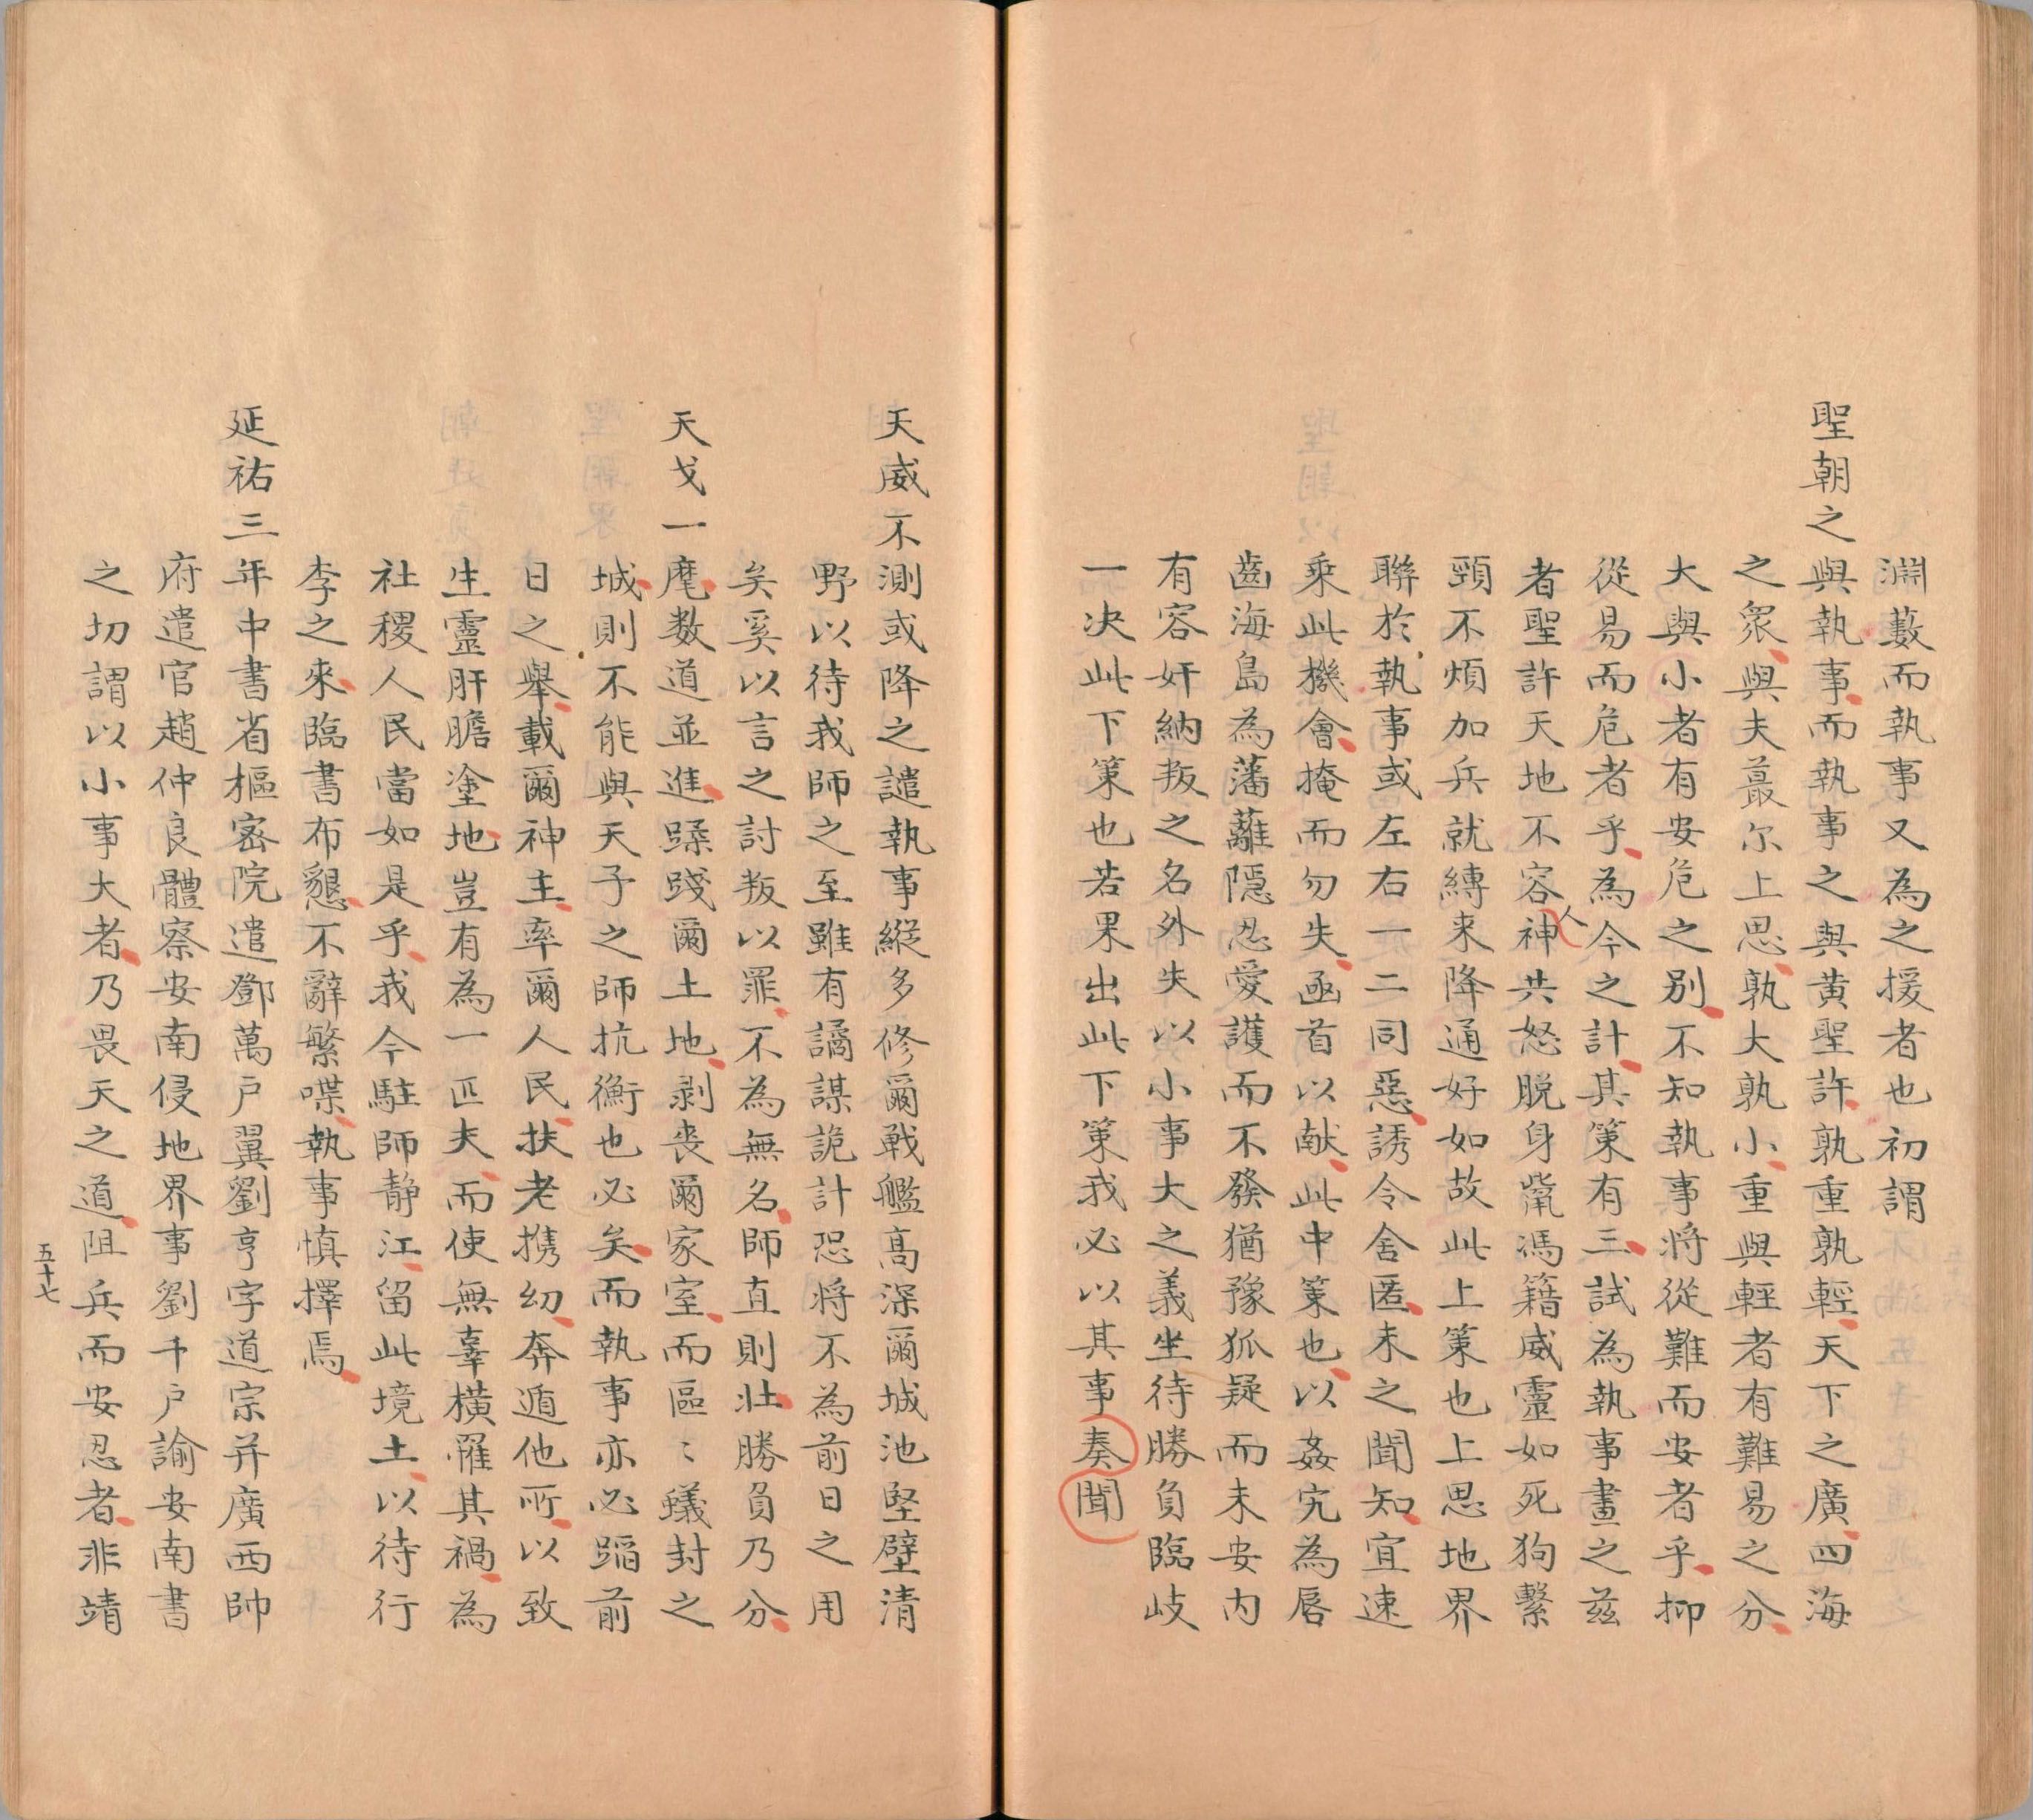 淵藪而執事又為之援者也初謂
聖朝之與執事而執事之與黄聖許孰重孰輕天下之廣四海
之衆與夫蕞尔上思孰大孰小重與輕者有難易之分
大與小者有安危之別不知執事將從難而安者乎抑
從易而危者乎為今之計其策有三試為執事畫之兹
者聖許天地不容神人共怒脱身觜馮籍威靈如死狗繫
頸不煩加兵就縛来降通好如故此上策也上思地界
聯於執事或左右一二同惡誘令舍匿未之聞知宜速
乘此機會掩而勿失函首以献此中策也以姦宄為唇
齒海島為藩蘺隠忍愛護而不發猶豫狐疑而未安内
有容奸納叛之名外失以小事大之義坐待勝負臨岐
一决此下策也若果出此下策我必以其事奏聞
天威不測或降之譴執事縱多修爾戰艦高深爾城池堅壁清
野以待我師之至雖有譎謀詭計恐將不為前日之用
矣奚以言之討叛以罪不為無名師直則壯勝負乃分
天戈一麾数道並進蹂踐爾土地剥喪爾家室而區〻蟻封之
城則不能與天子之師抗衡也必矣而執事亦必蹈前
日之舉載爾神主率爾人民扶老携幼奔遁他所以致
生靈肝膽塗地豈有為一匹夫而使無辜横罹其禍為
社稷人民當如是乎我今駐師静江留此境土以待行
李之來臨書布懇不辭繁喋執事慎擇焉
延祐三年中書省樞宻院遣鄧萬戸翼劉亨字道宗并廣西帥
府遣官趙仲良體察安南侵地界事劉千戸諭安南書
之切謂以小事大者乃畏天之道阻兵而安忍者非靖
五十七